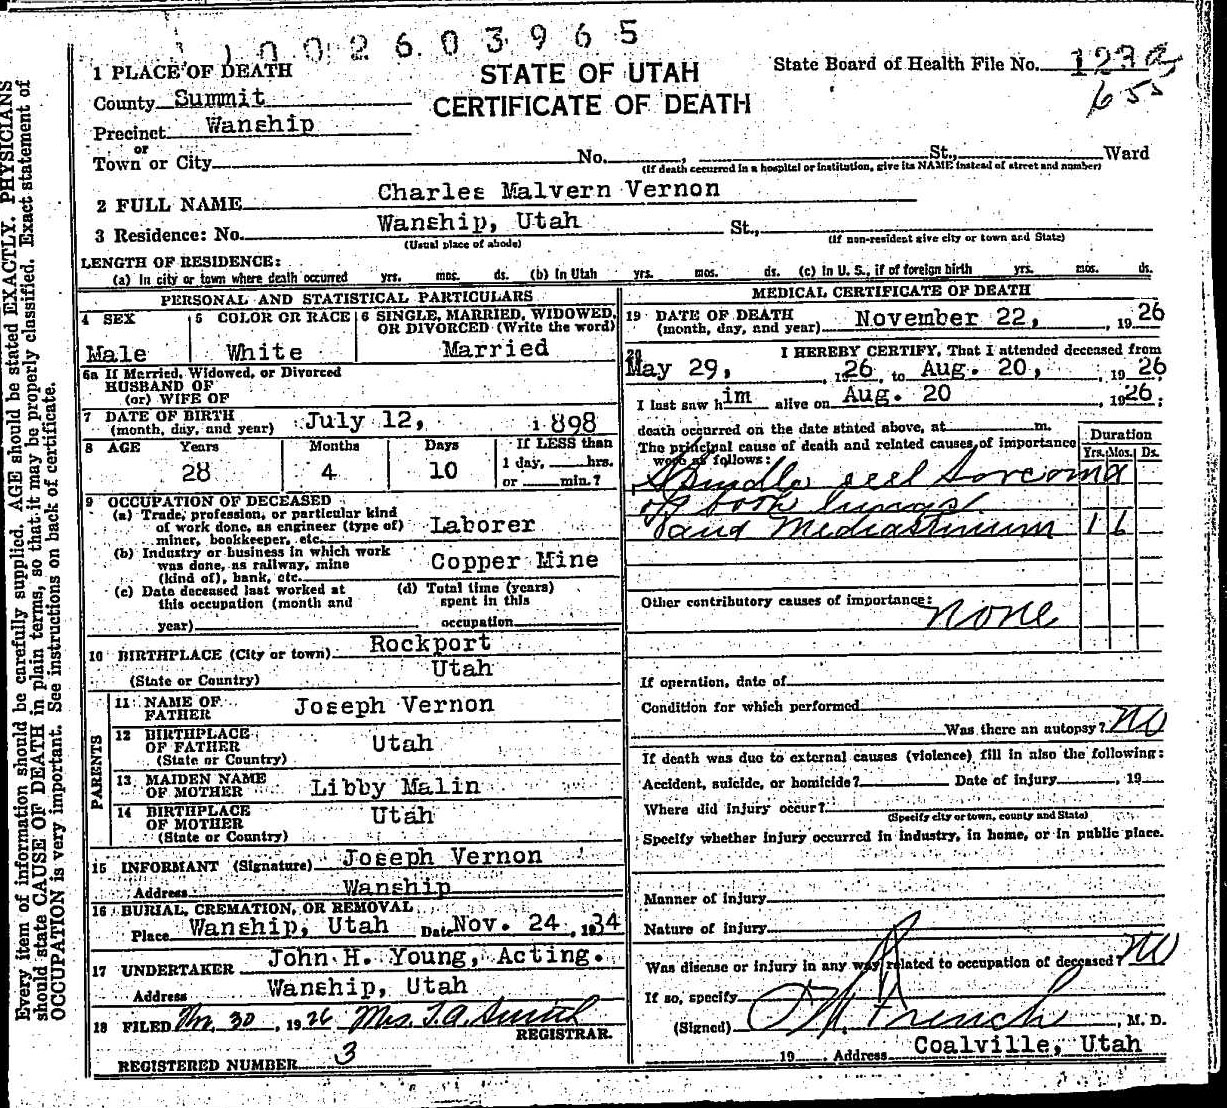 1 0 0 2 6 0 3 9 6 5
STATE OF UTAH
CERTIFICATE OF DEATH
State Board of Health File No. 123a
655
1 PLACE OF DEATH
County Summit
Precinct Wanship
or
Town or City No. , St., Ward
(If death occurred in a hospital or institution, give its NAME instead of street and number)
2 FULL NAME Charles Malvern Vernon
3 Residence: No. Wanship, Utah St.,
(Usual place of abode) (If non-resident give city or town and State)
LENGTH OF RESIDENCE:
(a) In city or town where death occurred yrs. mos. ds. (b) In Utah yrs. mos. ds. (c) In U. S., if of foreign birth yrs. mos. ds.
PERSONAL AND STATISTICAL PARTICULARS
4 SEX
Male
5 COLOR OR RACE
White
6 SINGLE, MARRIED, WIDOWED,
OR DIVORCED (Write the word)
Married
6a If Married, Widowed, or Divorced
HUSBAND OF
(or) WIFE OF
7 DATE OF BIRTH
(month, day, and year) July 12, 1898
8 AGE Years Months Days If LESS than
28 4 10 1 day, hrs.
or min.?
9 OCCUPATION OF DECEASED
(a) Trade, profession, or particular kind
of work done, as engineer (type of) Laborer
miner, bookkeeper, etc.
(b) Industry or business in which work
was done, as railway, mine Copper Mine
(kind of), bank, etc.
(c) Date deceased last worked at (d) Total time (years)
this occupation (month and spent in this
year) occupation
10 BIRTHPLACE (City or town) Rockport
(State or Country) Utah
PARENTS
11 NAME OF
FATHER Joseph Vernon
12 BIRTHPLACE
OF FATHER Utah
(State or Country)
13 MAIDEN NAME
OF MOTHER Libby Malin
14 BIRTHPLACE
OF MOTHER Utah
(State or Country)
15 INFORMANT (Signature) Joseph Vernon
Address Wanship
16 BURIAL, CREMATION, OR REMOVAL
Place Wanship, Utah Date Nov. 24, 1934
17 UNDERTAKER John H. Young, Acting.
Address Wanship, Utah
18 FILED Nov. 30, 1926 Mrs. T. A. Smith
REGISTRAR.
REGISTERED NUMBER 3
MEDICAL CERTIFICATE OF DEATH
19 DATE OF DEATH
(month, day, and year) November 22, , 1926
20 I HEREBY CERTIFY, That I attended deceased from
May 29, , 1926, to Aug. 20, , 1926
I last saw him alive on Aug. 20 , 1926;
death occurred on the date stated above, at m.
The principal cause of death and related causes of importance
were as follows:
Duration
Yrs. Mos. Ds.
Spindle cell Sarcoma
of both lungs
and Mediastinum 1 6
Other contributory causes of importance:
none
If operation, date of
Condition for which performed
Was there an autopsy? no
If death was due to external causes (violence) fill in also the following:
Accident, suicide, or homicide? Date of injury , 19
Where did injury occur?
(Specify city or town, county and State)
Specify whether injury occurred in industry, in home, or in public place.
Manner of injury
Nature of injury
Was disease or injury in any way related to occupation of deceased? no
If so, specify
(Signed) French , M. D.
19 Address Coalville, Utah
Every item of information should be carefully supplied. AGE should be stated EXACTLY. PHYSICIANS
should state CAUSE OF DEATH in plain terms, so that it may be properly classified. Exact statement of
OCCUPATION is very important. See instructions on back of certificate.